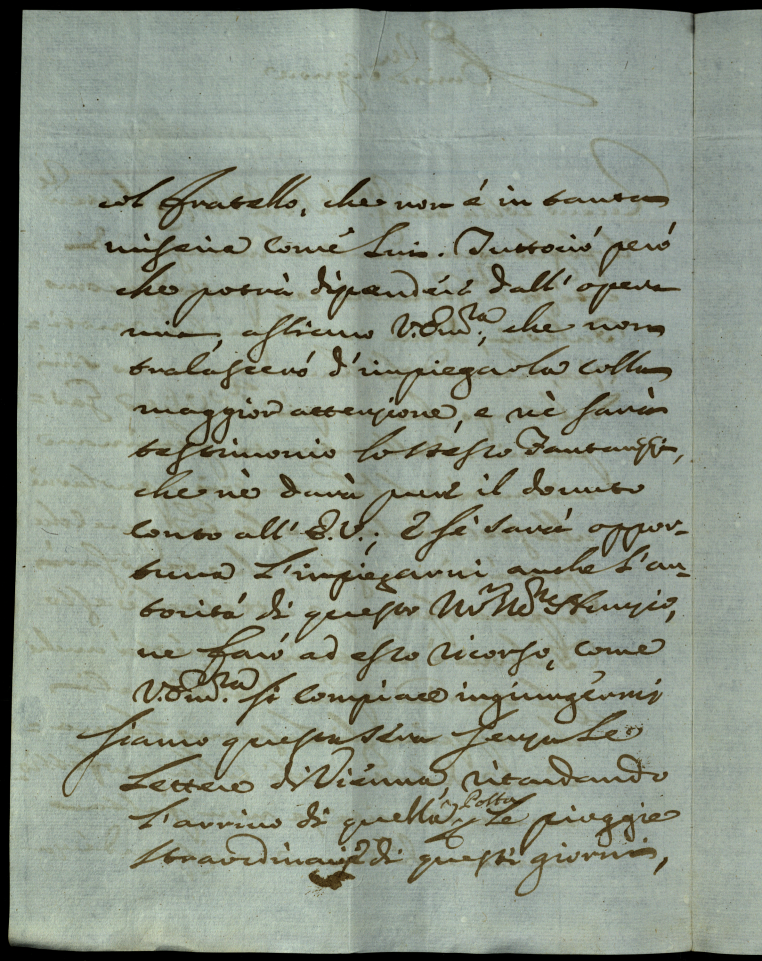 col fratello, che non é in tanta
miseria come Lui. Tuttoció peró
che potrà dipendere dall' opera
mia, assicuro V. Em.za, che non
tralascieró d'impiegarla colla
maggior attenzione, e nè sarà
testimonio lo stesso
che nè darà pure il dovuto
conto all' E. V.; e se sará oppor-
tuna l'impiegarvi anche l'au-
toritá di questo Nunzio,
ne faró ad esso ricorso, come
V. Em.za si compiace ingiungermi
siamo questa sera senza Le
Lettere di Vienna, ritardando
l'arrivo di quella Posta p Le pioggie
straordinarie di questi giorni,